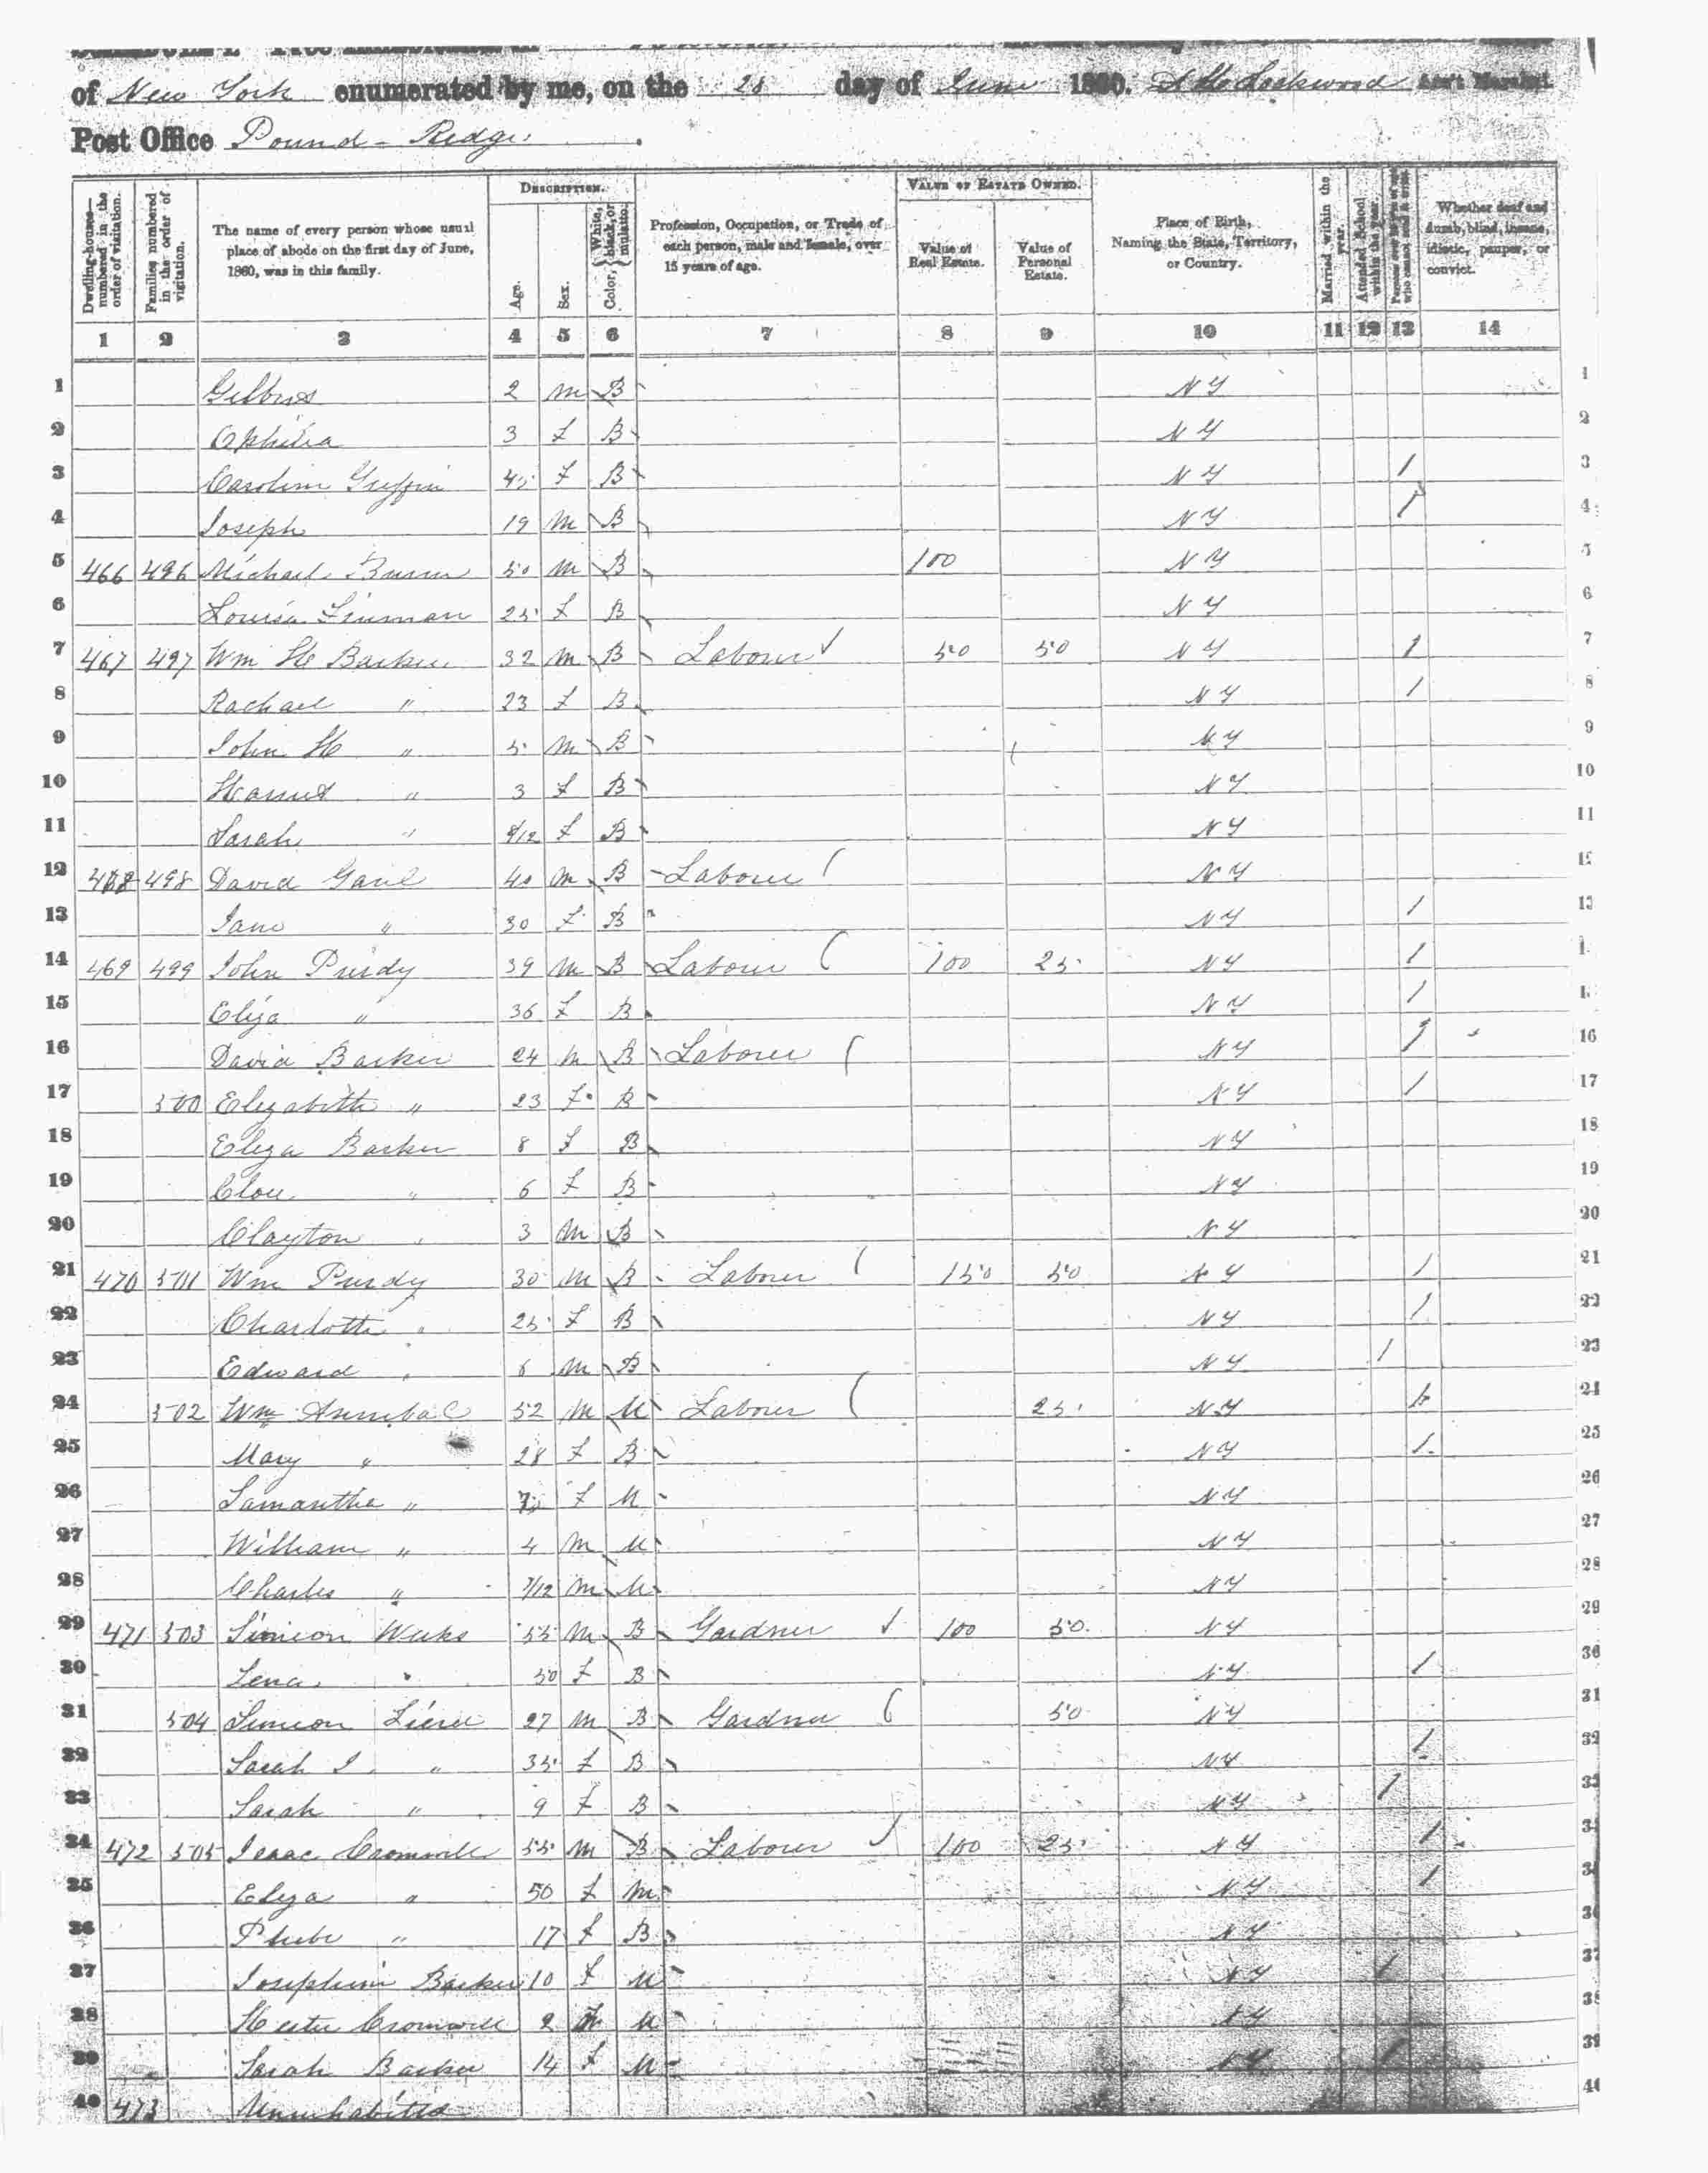 of New York enumerated by me, on the 28 day of June 1860. Lockwood Ass't Marshal.
Post Office Pound-Ridge.
DESCRIPTION. VALUE OF ESTATE OWNED.
Dwelling-houses— numbered in the order of visitation. Families numbered in the order of visitation. The name of every person whose usual place of abode on the first day of June, 1860, was in this family. Age. Sex. Color, { White, black, or mulatto. Profession, Occupation, or Trade of each person, male and female, over 15 years of age. Value of Real Estate. Value of Personal Estate. Place of Birth, Naming the State, Territory, or Country. Married within the year. Attended School within the year. Whether deaf and dumb, blind, insane, idiotic, pauper, or convict.
1 2 3 4 5 6 7 8 9 10 11 12 13 14
1 2 m B NY 1
2 Ophelia 3 f B NY 2
3 Caroline Griffin 45 f B NY / 3
4 Joseph 19 m B NY / 4
5 466 496 Michael 50 m B 100 NY 5
6 Louisa 25 f B NY 6
7 467 497 Wm H Barker 32 m B Labourer ✓ 50 50 NY 1 7
8 Rachael " 23 f B NY / 8
9 John H " 5 m B NY 9
10 Harriet " 3 f B NY 10
11 Sarah " /12 f B NY 11
12 468 498 David 40 m B Labourer NY 12
13 Jane " 30 f B NY / 13
14 469 499 John Purdy 39 m B Labourer 100 25 NY 1
15 Eliza " 36 f B NY /
16 David Barker 24 m B Labourer NY 1 16
17 500 Elizabeth " 23 f B NY / 17
18 Eliza Barker 8 f B NY 18
19 Cloe " 6 f B NY 19
20 Clayton " 3 m B NY 20
21 470 501 Wm Purdy 30 m B Labourer 150 50 NY / 21
22 Charlotte " 25 f B NY / 22
23 Edward " 6 m B NY / 23
24 502 Wm Annibal 52 m M Labourer 25 NY 1 24
25 Mary " 28 f B NY 1 25
26 Samantha " 7 f M NY 26
27 William " 4 m M NY 27
28 Charles " 7/12 m M NY 28
29 471 503 Simeon Weeks 55 m B Gardner ✓ 100 50 NY 29
30 Lena " 50 f B NY / 30
31 504 Simeon 27 m B Gardner 50 NY 31
32 Sarah J " 35 f B NY / 32
33 Sarah " 9 f B NY / 33
34 472 505 Isaac Cromwell 55 m B Labourer 100 25 NY /
35 Eliza " 50 f M NY /
36 Phebe " 17 f B NY
37 Josephine Barker 10 f M NY / 37
38 Hester Cromwell 2 f M NY 38
39 Sarah Barker 14 f M NY / 39
40 473 Uninhabited 40